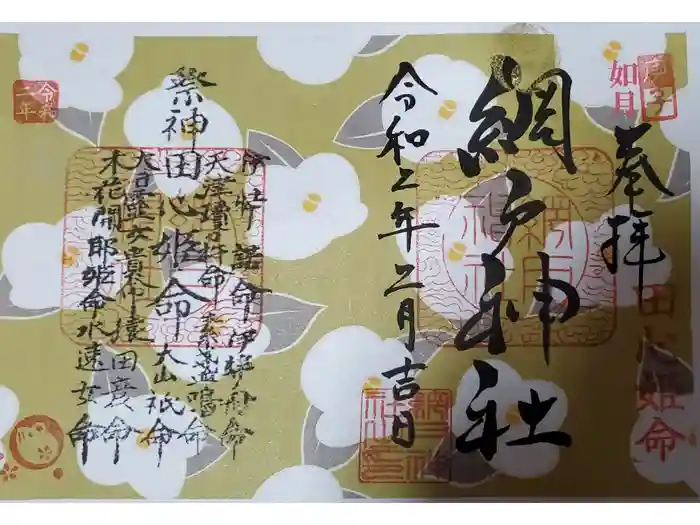 庚子
如月
奉拝
田心姫命
網戸神社
令和二年二月吉日
令和
二年
祭神
田心姫命
伊弉諾命 伊弉冉命
天津瓊々杵命 素戔嗚命
大山祇命
大己貴命 猿田彦命
木花開耶姫命 水速女命